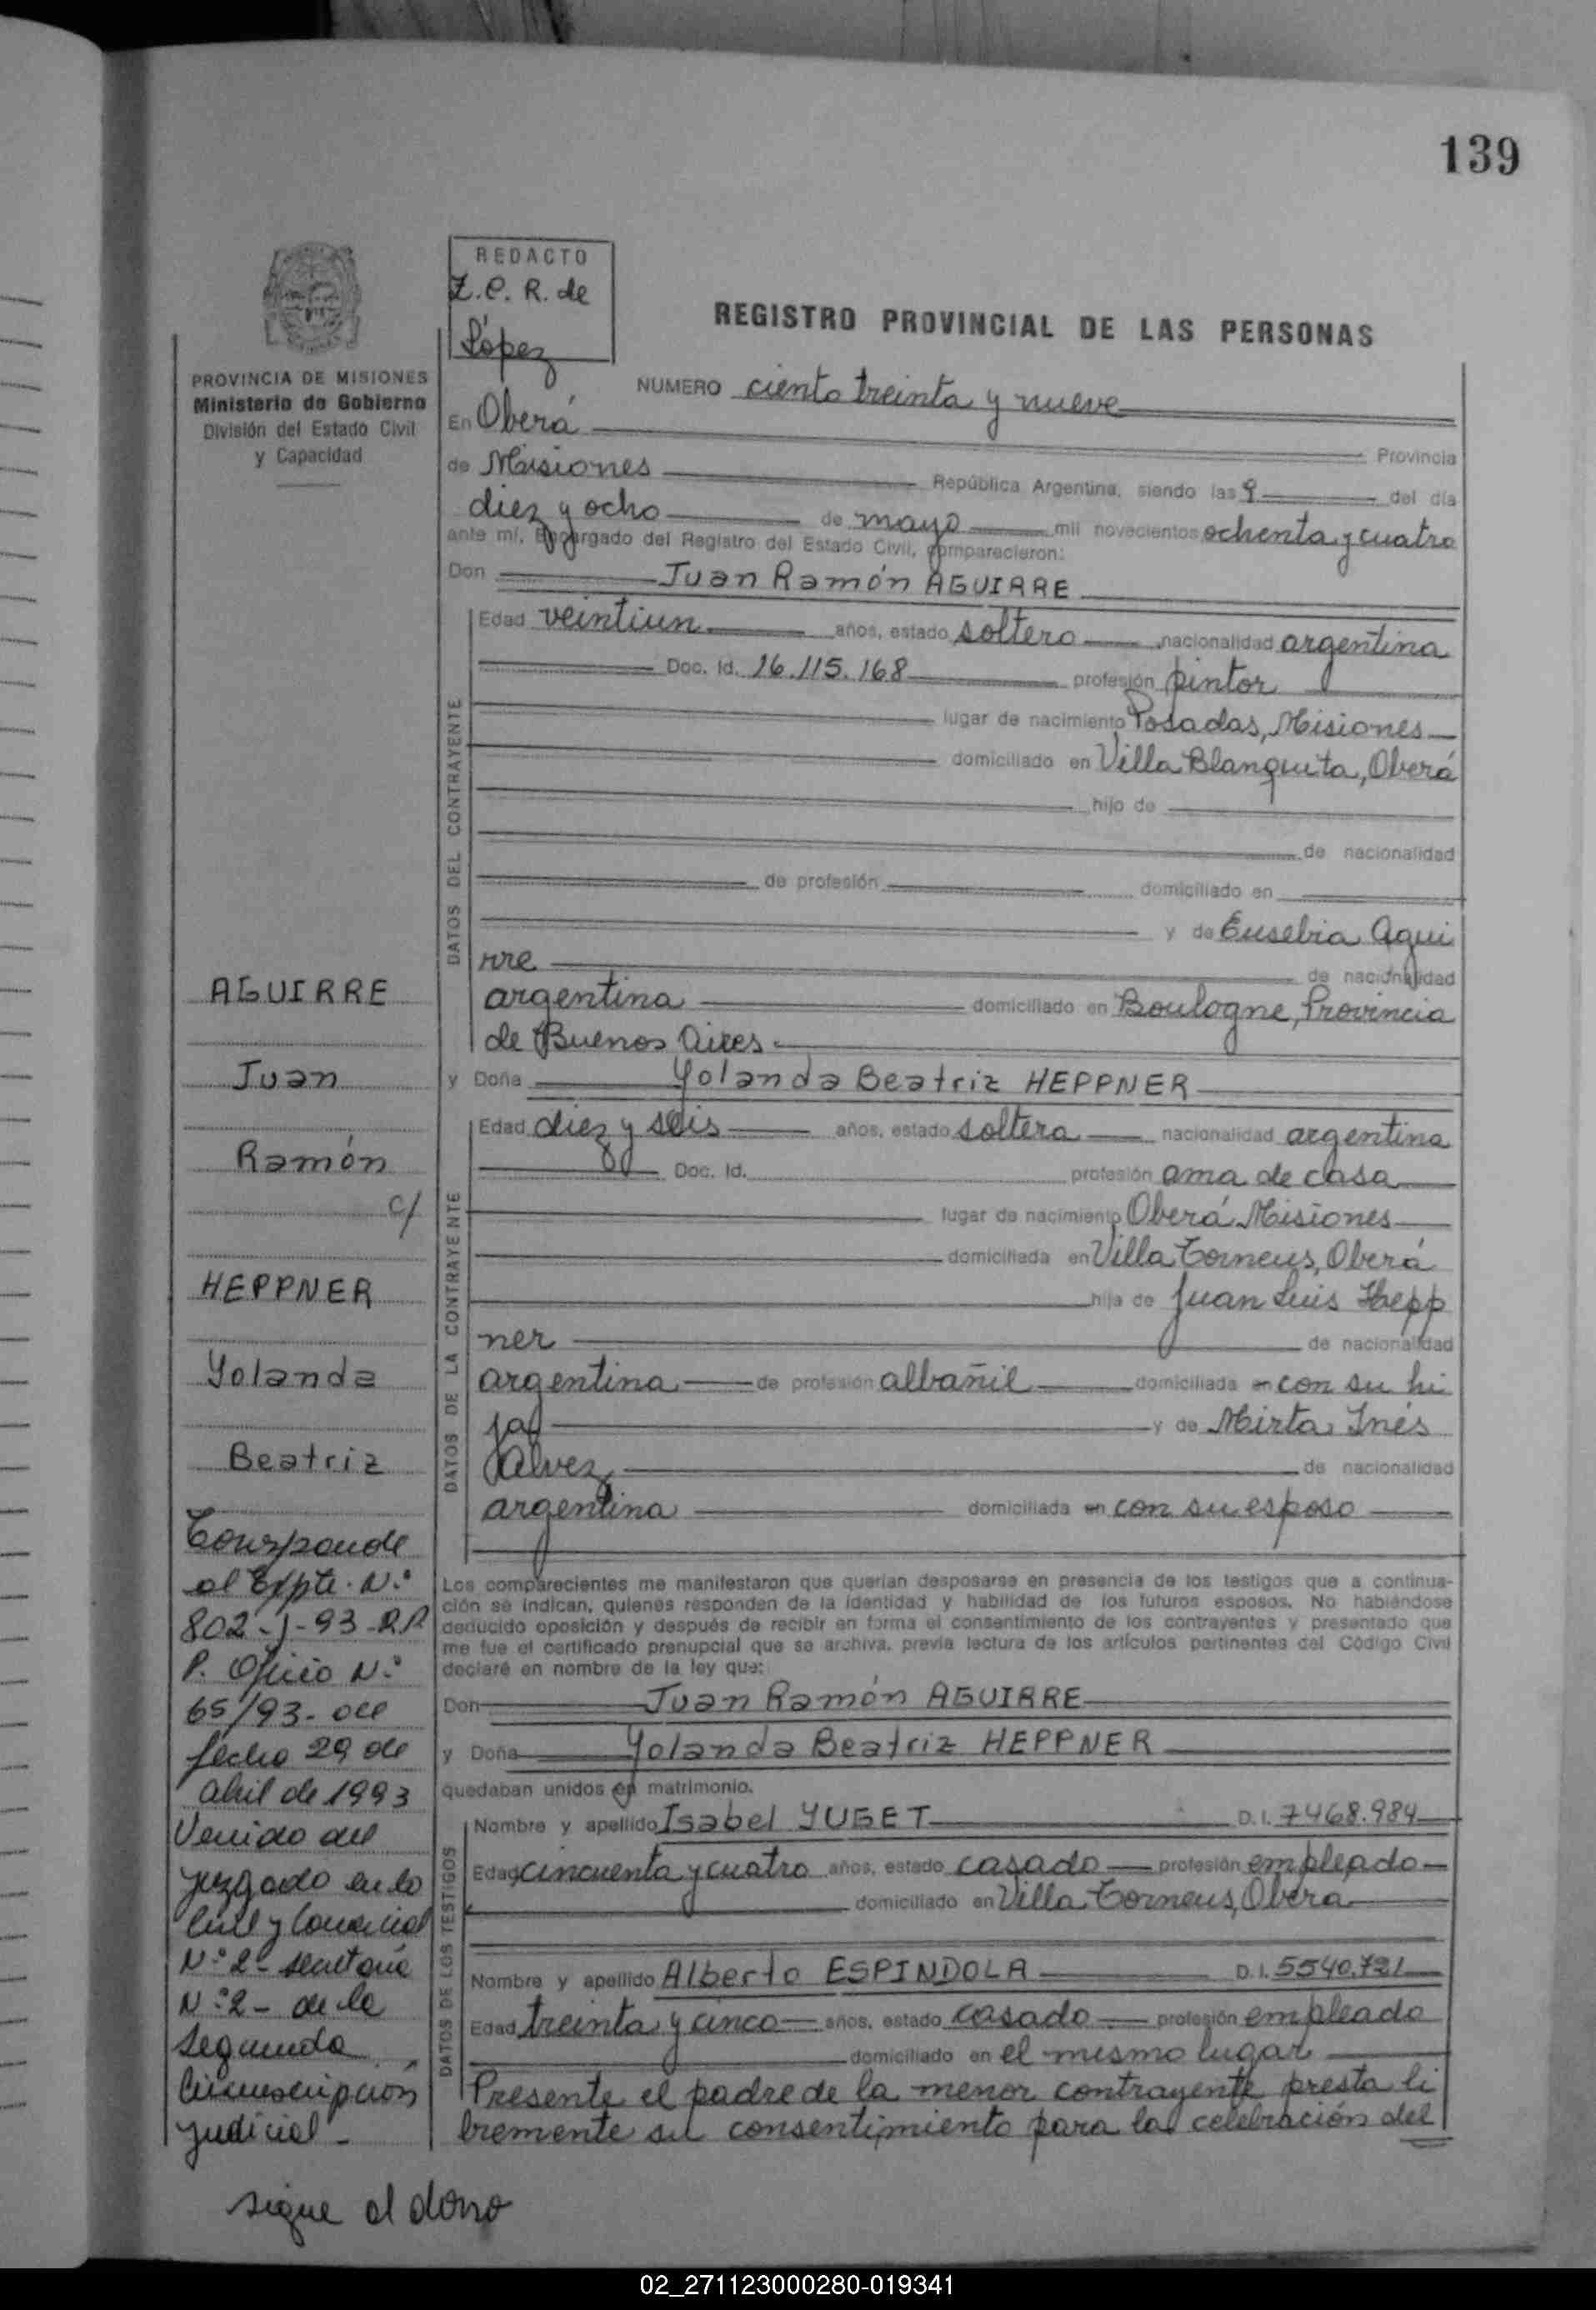 139
REDACTO
Z.C.R. de
López
REGISTRO PROVINCIAL DE LAS PERSONAS
PROVINCIA DE MISIONES
Ministerio de Gobierno
División del Estado Civil
y Capacidad
NUMERO ciento treinta y nueve
En Oberá Provincia
de Misiones República Argentina, siendo las 9 del día
diez y ocho de mayo mil novecientos ochenta y cuatro
ante mí, Encargado del Registro del Estado Civil, comparecieron:
Don Juan Ramón AGUIRRE
DATOS DEL CONTRAYENTE
Edad veintiun años, estado soltero nacionalidad argentina
Doc. Id. 16.115.168 profesión pintor
lugar de nacimiento Posadas, Misiones
domiciliado en Villa Blanquita, Oberá
hijo de
de nacionalidad
de profesión domiciliado en
y de Eusebia Agui
rre de nacionalidad
argentina domiciliado en Boulogne, Provincia
de Buenos Aires
y Doña Yolanda Beatriz HEPPNER
DATOS DE LA CONTRAYENTE
Edad diez y seis años, estado soltera nacionalidad argentina
Doc. Id. profesión ama de casa
lugar de nacimiento Oberá Misiones
domiciliada en Villa Torneus, Oberá
hija de Juan Luis Hepp
ner de nacionalidad
argentina de profesión albañil domiciliada en con su hi
ja y de Mirta Inés
Alvez de nacionalidad
argentina domiciliada en con su esposo
Los comparecientes me manifestaron que querían desposarse en presencia de los testigos que a continua-
ción se indican, quienes responden de la identidad y habilidad de los futuros esposos. No habiéndose
deducido oposición y después de recibir en forma el consentimiento de los contrayentes y presentado que
me fue el certificado prenupcial que se archiva, previa lectura de los artículos pertinentes del Código Civil
declaré en nombre de la ley que:
Don Juan Ramón AGUIRRE
y Doña Yolanda Beatriz HEPPNER
quedaban unidos en matrimonio.
DATOS DE LOS TESTIGOS
Nombre y apellido Isabel YUBET D.I. 7468.984
Edad cincuenta y cuatro años, estado casado profesión empleado
domiciliado en Villa Torneus, Oberá
Nombre y apellido Alberto ESPINDOLA D.I. 5540.721
Edad treinta y cinco años, estado casado profesión empleado
domiciliado en el mismo lugar
Presente el padre de la menor contrayente presta li
bremente su consentimiento para la celebración del
AGUIRRE
Juan
Ramón
c/
HEPPNER
Yolanda
Beatriz
Corresponde
al Expte. N.º
802-J-93-R.P.
P. Oficio N.º
65/93- de
fecha 29 de
abril de 1993
Venido del
Juzgado en lo
Civil y Comercial
N.º 2- secretaria
N.º 2- de la
Segunda
Circunscripción
Judicial-
sigue al dorso
02_271123000280-019341